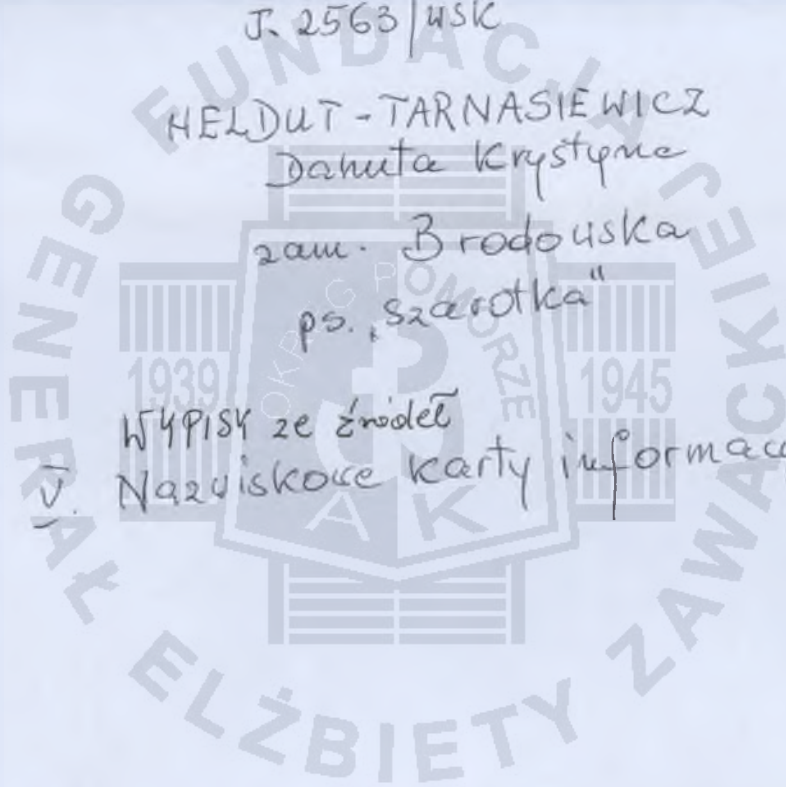 J. 2563/WSK
HELDUT-TARNASIEWICZ
Danuta Krystyna
zam. Brodowska
ps. „Szarotka"
WYPISY ze źródeł
V. Nazwiskowe karty informac
FUNDACJA
GENERAŁ ELŻBIETY ZAWACKIEJ
OKRĘG POMORZE
1939
1945
AK